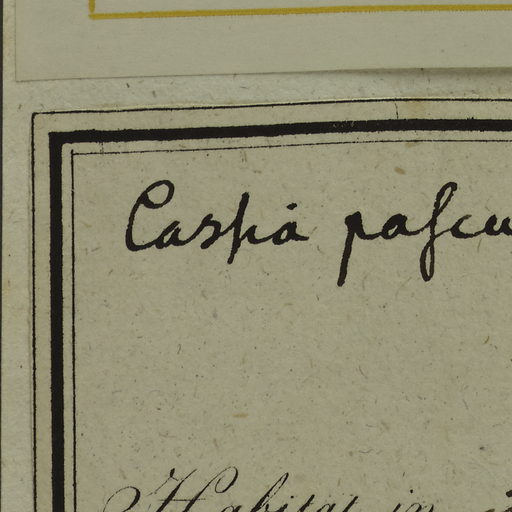 Cassia pascu
Habitat in